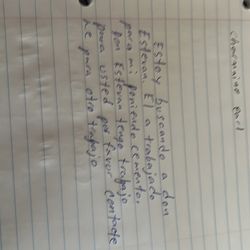 Estoy buscando a don
Estevan. El a trabajado
para mi poniendo cemento.
Don Estevan tengo trabajo
para usted por favor contacte
me para otro trabajo